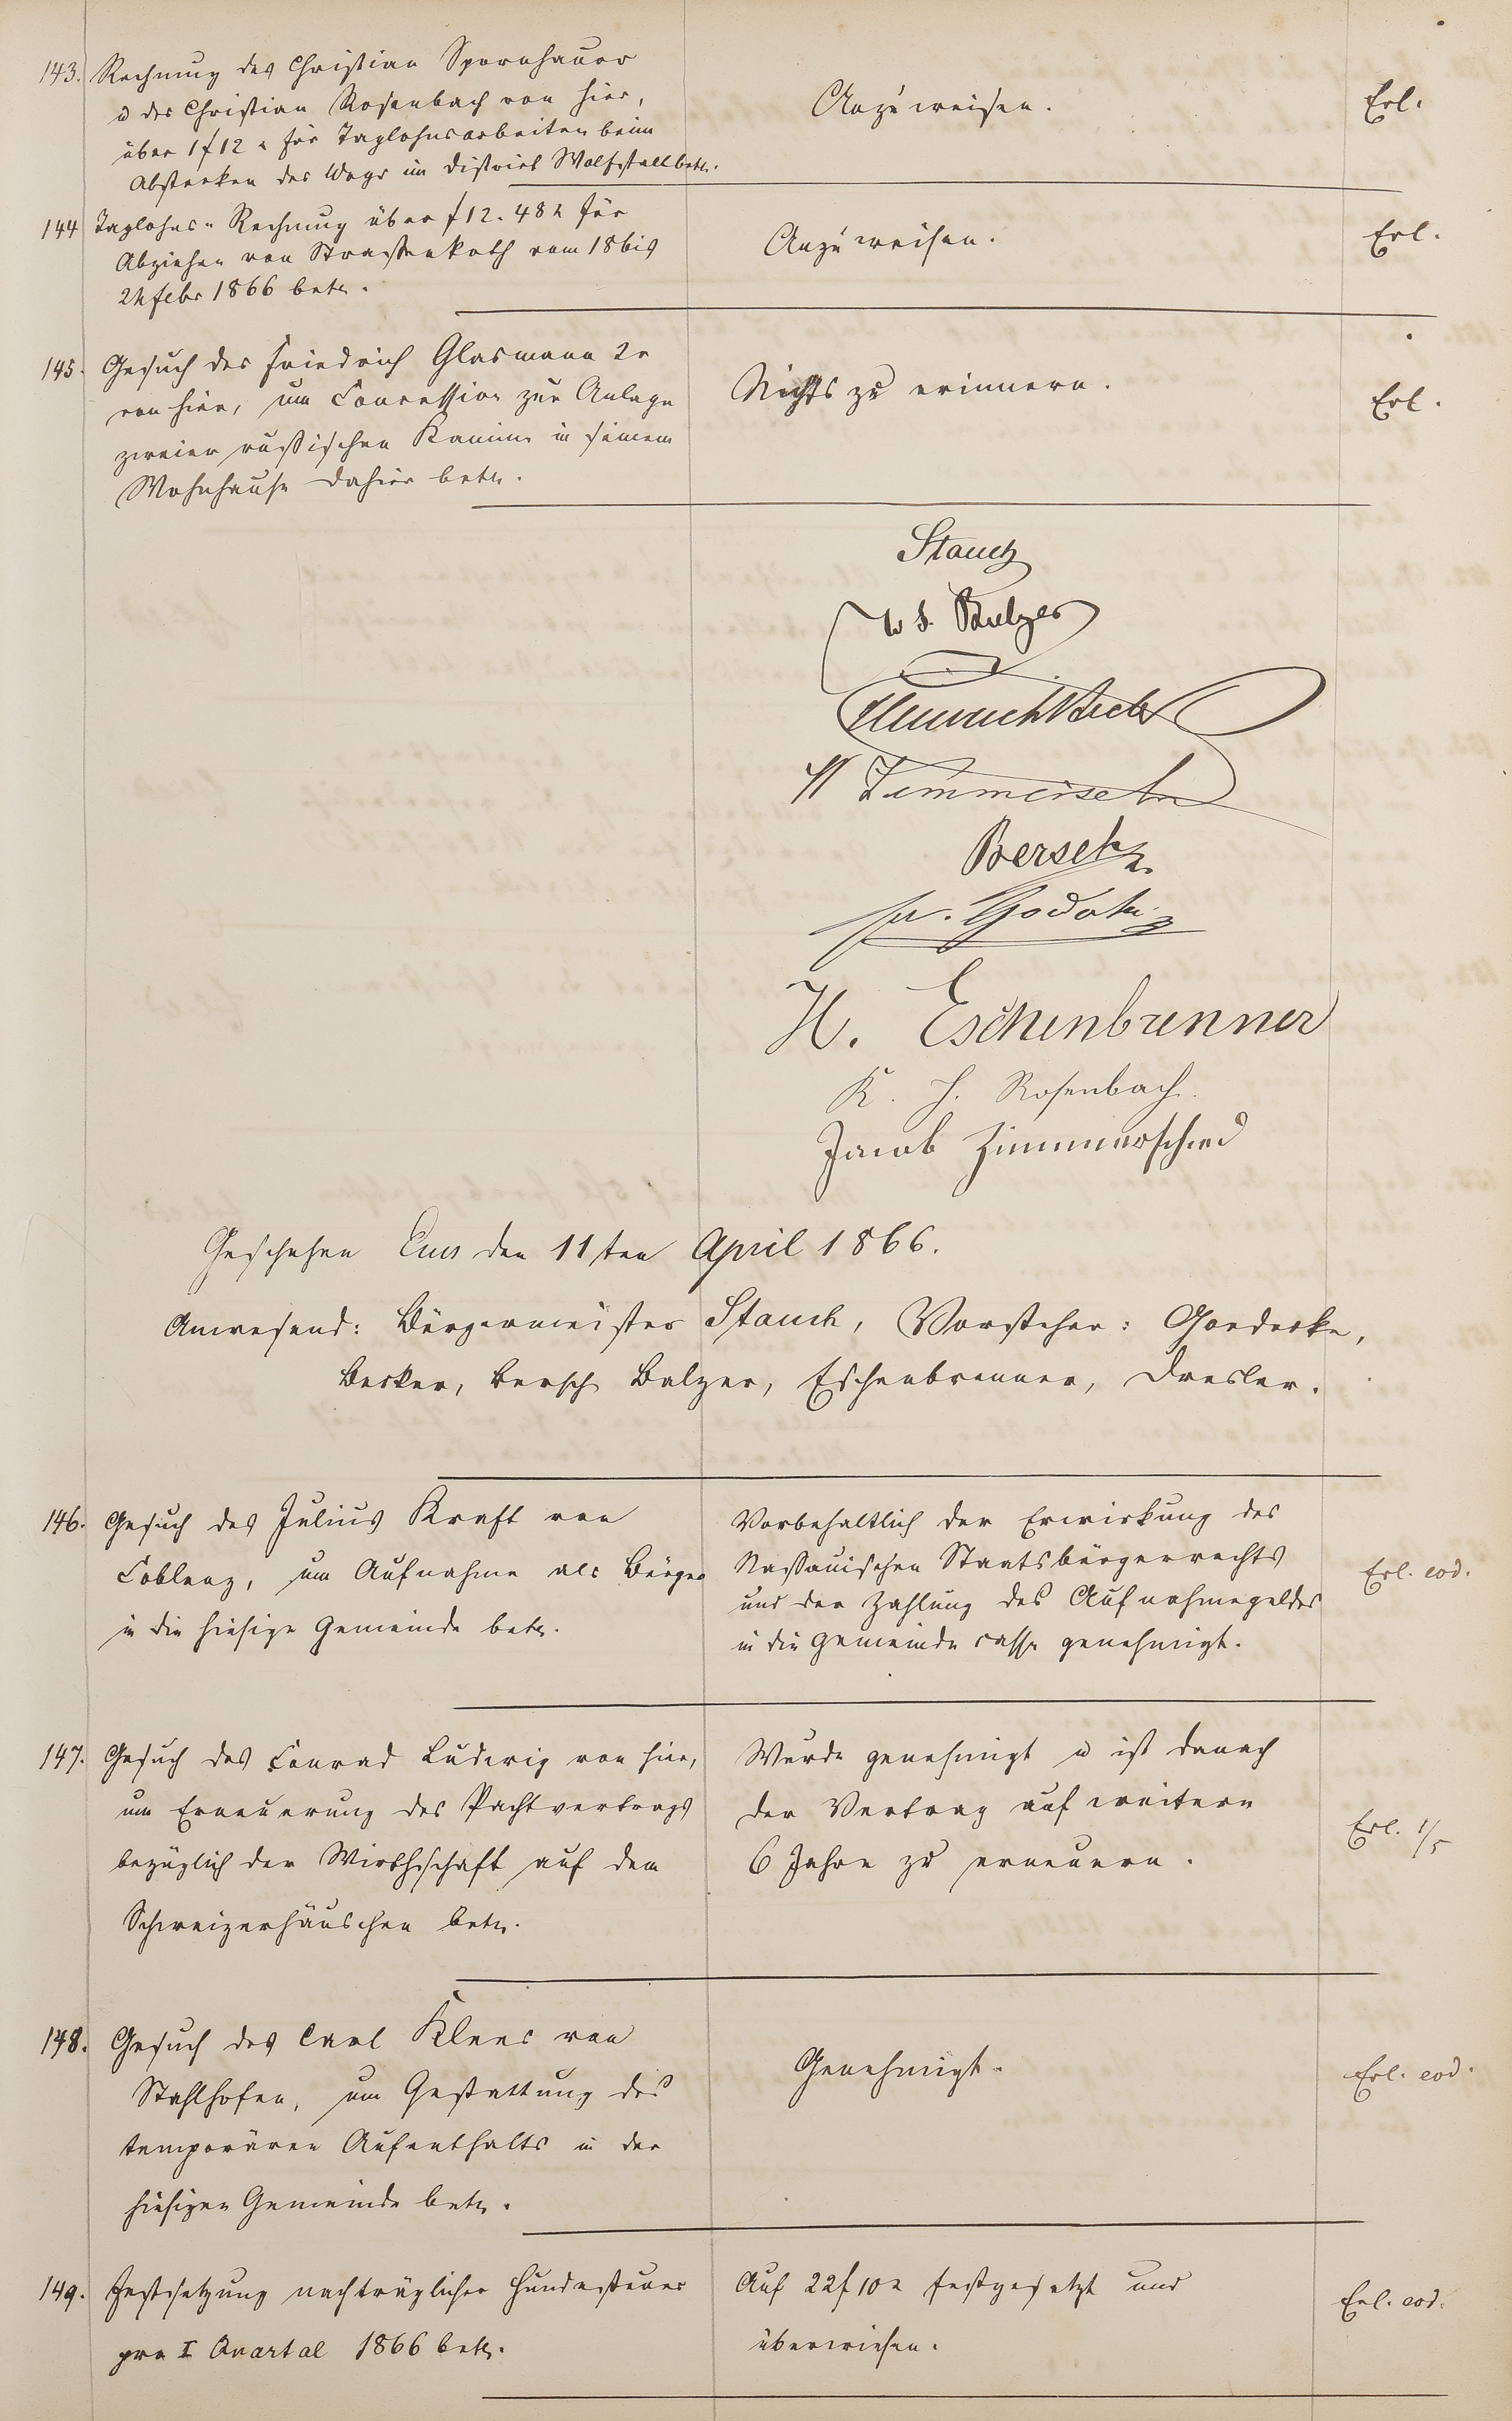 143. Rechnung des Christian Spornhauer
u des Christian Rosenbach von hier,
über 1 f 12 x für Taglohnsarbeiten beim
Abstecken des Wegs im District Wolfsstall betr.
Anzuweisen.
Erl.
144 Taglohns-Rechnung über f 12. 48 x für
Abziehen von Straßenkoth vom 18 bis
24 febr 1866 betr.
Anzuweisen.
Erl.
145. Gesuch des Friedrich Glasmann 2r
von hier, um Concession zur Anlage
zweier russischen Kamine in seinem
Wohnhause dahier betr.
Nichts zu erinnern.
Erl.
Stauch
W. F. Balzer
Heinrich
Bersch
H. Eschenbrenner
K. H. Rosenbach.
Jacob Zimmerschied
Geschehen Ems den 11ten April 1866.
Anwesend: Bürgermeister Stauch, Vorsteher: Goedecke,
Becker, Bersch Balzer, Eschenbrenner, Dresler.
146. Gesuch des Julius Kraft von
Coblenz, um Aufnahme als Bürger
in die hiesige Gemeinde betr.
Vorbehaltlich der Erwirkung des
Nassauischen Staatsbürgerrechts
und der Zahlung des Aufnahmegeldes
in die Gemeindecasse genehmigt.
Erl. eod.
147. Gesuch des Conrad Ludwig von hier,
um Erneuerung des Pachtvertrags
bezüglich der Wirthschaft auf dem
Schweizerhäuschen betr.
Wurde genehmigt u ist danach
der Vertrag auf weitere
6 Jahre zu erneuern.
Erl. 1/5
148. Gesuch des Carl Klees von
Stahlhofen, um Gestattung des
temporären Aufenthalts in der
hiesigen Gemeinde betr.
Genehmigt.
Erl. eod.
149. Festsetzung nachträglicher Hundesteuer
pro I Quartal 1866 betr.
Auf 22 f 10 x festgesetzt und
überwiesen.
Erl. eod.